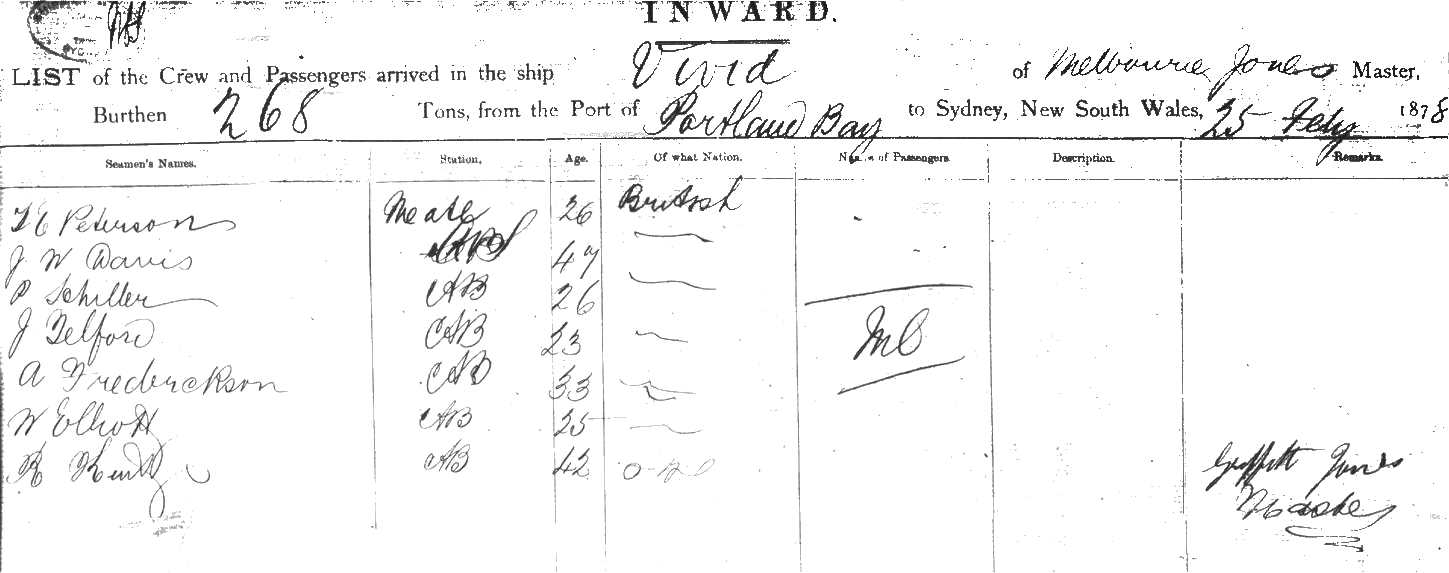 INWARD.
LIST of the Crew and Passengers arrived in the ship Vivid of Melbourne Jones Master,
Burthen 268 Tons, from the Port of Portland Bay to Sydney, New South Wales, 25 Feby 1878
Seamen's Names. Station. Age. Of what Nation. Names of Passengers Description. Remarks.
E Peterson 26 British
J W Davis 47
P Schiller AB 26
J Telford AB 23
A Frederickson AB 33
W Elliott AB 25
R AB 42
Griffith Jones
Master